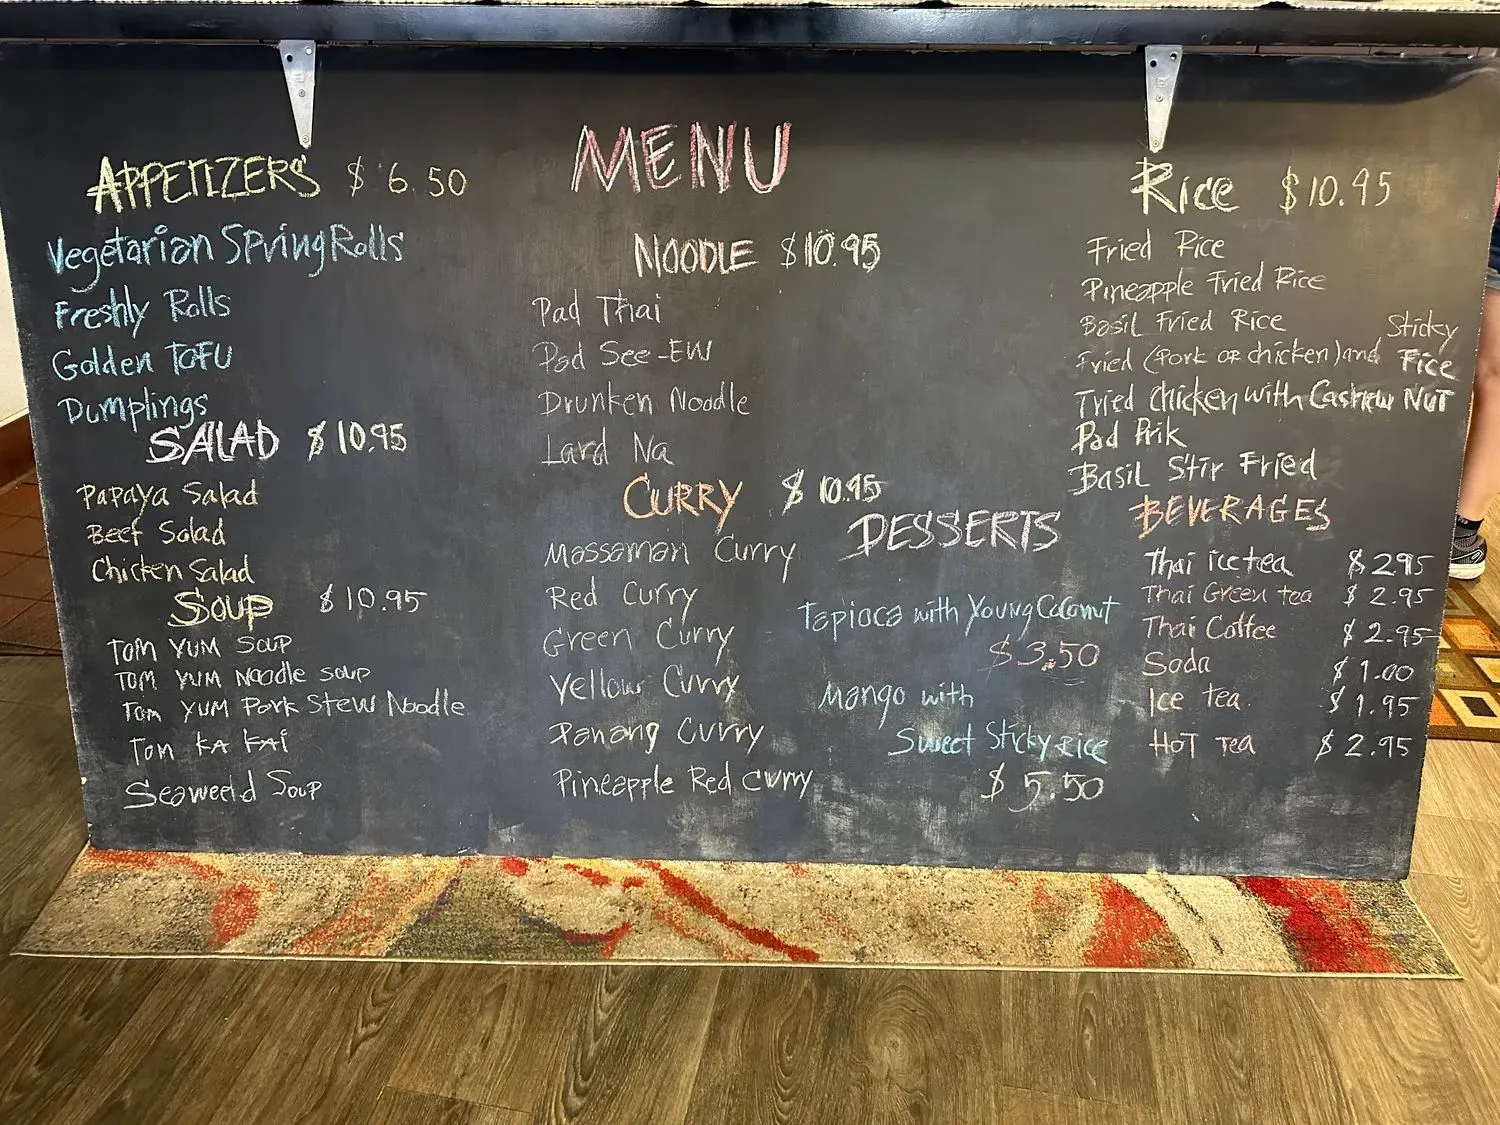 MENU
APPETIZERS $ 6.50
Vegetarian Spring Rolls
Freshly Rolls
Golden TOFU
Dumplings
SALAD $10.95
Papaya Salad
Beef Salad
Chicken Salad
SOUP $10.95
TOM YUM SOUP
TOM YUM Noodle SOUP
Tom YUM Pork Stew Noodle
Tom KA KAI
Seaweeld Soup
NOODLE $10.95
Pad Thai
Pad See-EW
Drunken Noodle
Lard Na
CURRY $10.95
Massaman Curry
Red Curry
Green Curry
Yellow Curry
Panang Curry
Pineapple Red Curry
DESSERTS
Tapioca with Young Coconut
$3.50
Mango with
Sweet Sticky Rice
$5.50
Rice $10.95
Fried Rice
Pineapple Fried Rice
Basil Fried Rice
Fried (Pork or chicken) and Sticky Rice
Fried Chicken with Cashew NUT
Pad Prik
Basil Stir Fried
BEVERAGES
Thai ice tea $2.95
Thai Green tea $2.95
Thai Coffee $2.95
Soda $1.00
Ice tea $1.95
HOT Tea $2.95